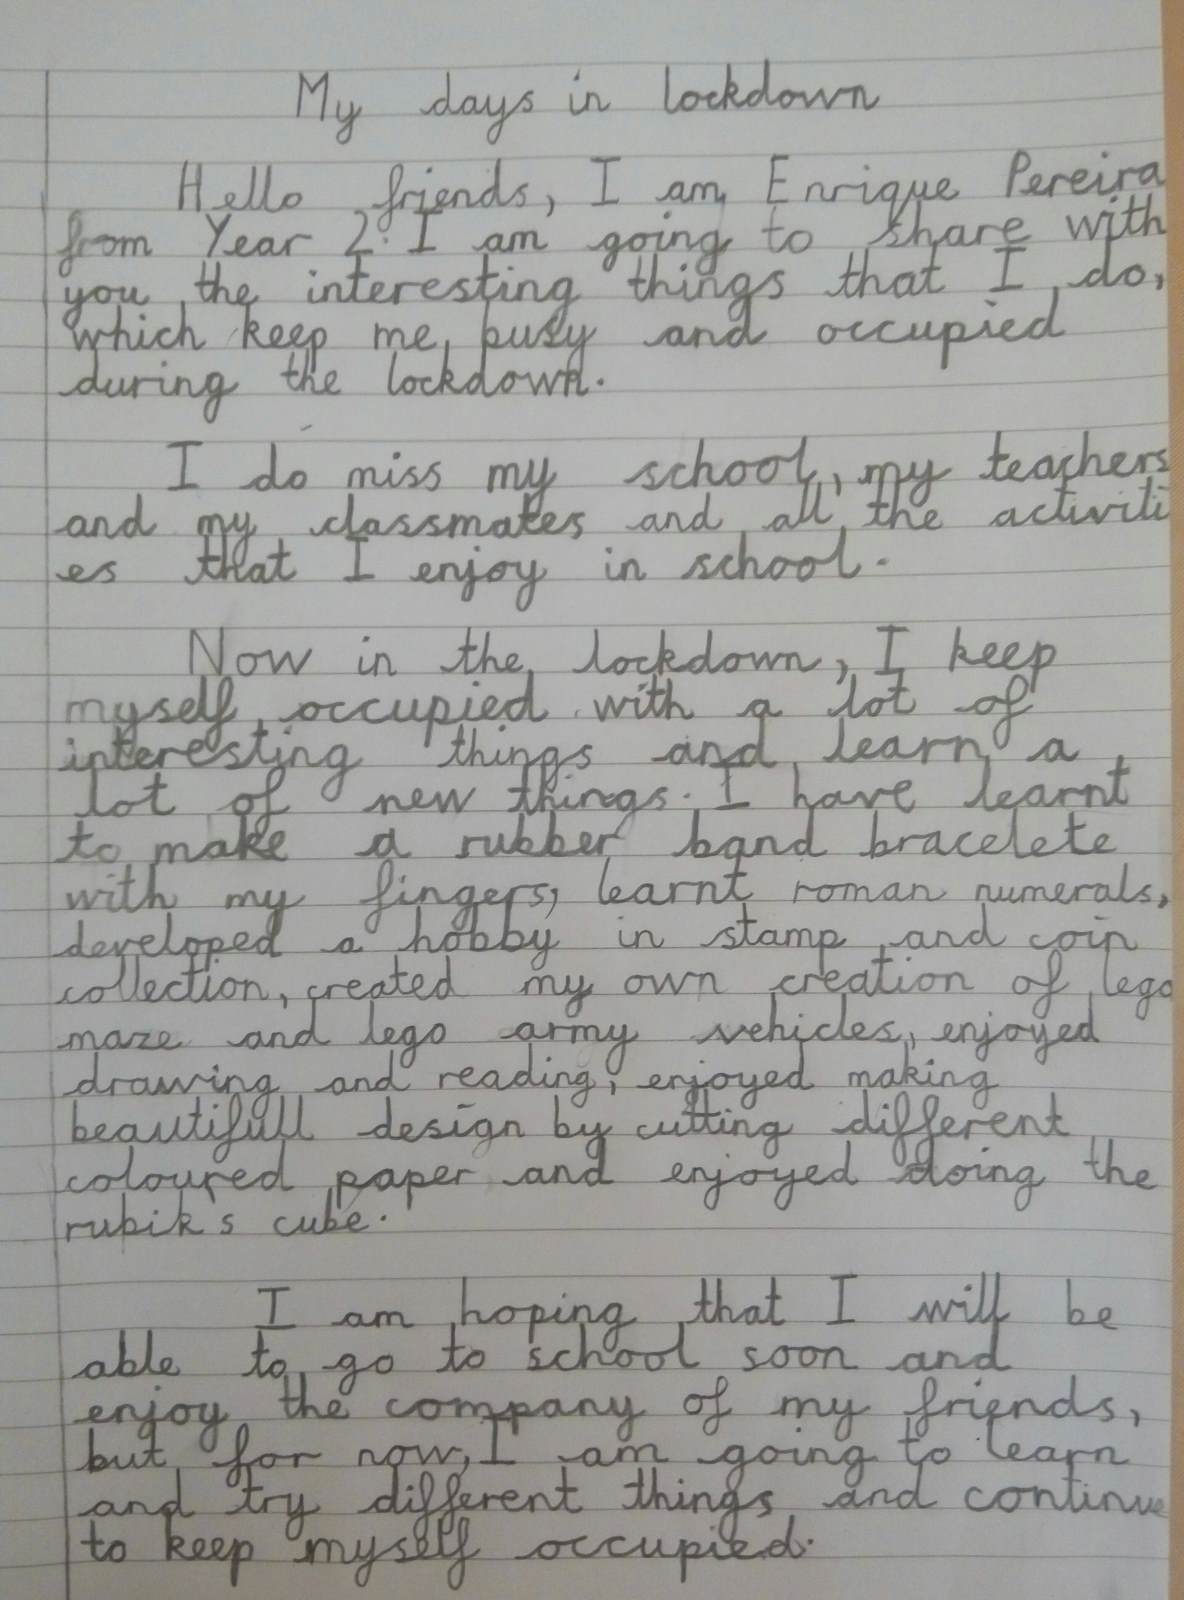 My days in lockdown
Hello friends, I am Enrique Pereira
from Year 2. I am going to share with
you the interesting things that I do,
which keep me busy and occupied
during the lockdown.
I do miss my school, my teachers
and my classmates and all the activiti
es that I enjoy in school.
Now in the lockdown, I keep
myself occupied with a lot of
interesting things and learn a
lot of new things. I have learnt
to make a rubber band bracelete
with my fingers, learnt roman numerals,
developed a hobby in stamp and coin
collection, created my own creation of lego
maze and lego army vehicles, enjoyed
drawing and reading, enjoyed making
beautifull design by cutting different
coloured paper and enjoyed doing the
rubik's cube.
I am hoping that I will be
able to go to school soon and
enjoy the company of my friends,
but for now, I am going to learn
and try different things and continue
to keep myself occupied.